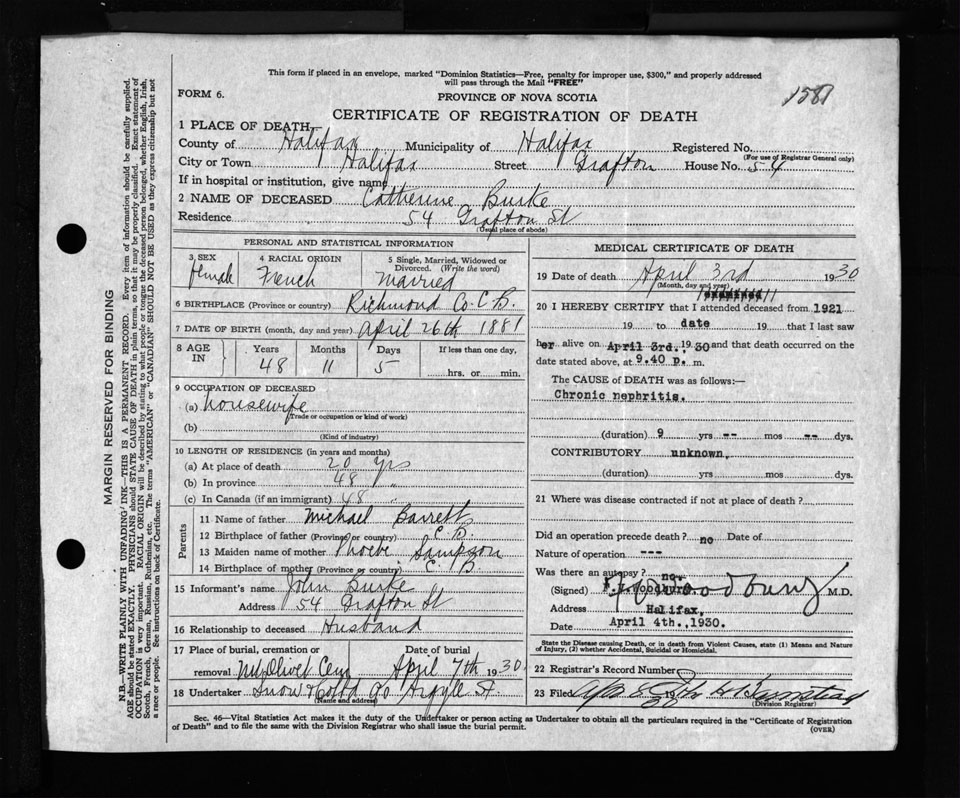 This form if placed in an envelope, marked "Dominion Statistics—Free, penalty for improper use, $300," and properly addressed
will pass through the Mail "FREE"
1581
FORM 6.
PROVINCE OF NOVA SCOTIA
CERTIFICATE OF REGISTRATION OF DEATH
1 PLACE OF DEATH
County of Halifax Municipality of Halifax Registered No.
(For use of Registrar General only)
City or Town Halifax Street Grafton House No. 54
If in hospital or institution, give name
2 NAME OF DECEASED Catherine Burke
Residence 54 Grafton St
(Usual place of abode)
PERSONAL AND STATISTICAL INFORMATION
3 SEX 4 RACIAL ORIGIN 5 Single, Married, Widowed or
Divorced. (Write the word)
female French Married
6 BIRTHPLACE (Province or country) Richmond Co. C.B.
7 DATE OF BIRTH (month, day and year) April 26th 1881
8 AGE IN Years Months Days If less than one day,
48 11 5 hrs. or min.
9 OCCUPATION OF DECEASED
(a) housewife
(Trade or occupation or kind of work)
(b)
(Kind of industry)
10 LENGTH OF RESIDENCE (in years and months)
(a) At place of death 20 yrs
(b) In province 48 "
(c) In Canada (if an immigrant) 48 "
Parents
11 Name of father Michael Barrett
12 Birthplace of father (Province or country) C.B.
13 Maiden name of mother Phoebe Sampson
14 Birthplace of mother (Province or country) C B
15 Informant's name John Burke
Address 54 Grafton St
16 Relationship to deceased Husband
17 Place of burial, cremation or Date of burial
removal Mt Olivet Cem April 7th 1930
18 Undertaker Snow & Co Ltd 90 Argyle St
(Name and address)
MEDICAL CERTIFICATE OF DEATH
19 Date of death April 3rd 1930
(Month, day and year)
20 I HEREBY CERTIFY that I attended deceased from 1921
19 to date 19 that I last saw
her alive on April 3rd., 1930 and that death occurred on the
date stated above, at 9.40 p. m.
The CAUSE of DEATH was as follows:—
Chronic nephritis.
(duration) 9 yrs -- mos -- dys.
CONTRIBUTORY unknown.
(duration) yrs. mos. dys.
21 Where was disease contracted if not at place of death?
Did an operation precede death? no Date of
Nature of operation ---
Was there an autopsy? no.
(Signed) F. Woodbury M.D.
Address Halifax,
Date April 4th., 1930.
State the Disease causing Death, or in death from Violent Causes, state (1) Means and Nature
of Injury, (2) whether Accidental, Suicidal or Homicidal.
22 Registrar's Record Number
23 Filed Apr 8 1930
(Division Registrar)
Sec. 46—Vital Statistics Act makes it the duty of the Undertaker or person acting as Undertaker to obtain all the particulars required in the "Certificate of Registration
of Death" and to file the same with the Division Registrar who shall issue the burial permit.
(OVER)
MARGIN RESERVED FOR BINDING
N.B.—WRITE PLAINLY WITH UNFADING INK—THIS IS A PERMANENT RECORD. Every item of information should be carefully supplied.
AGE should be stated EXACTLY. PHYSICIANS should STATE CAUSE OF DEATH in plain terms, so that it may be properly classified. Exact statement of
OCCUPATION is very important. RACIAL ORIGIN will be described by stating to what people or tongue the deceased person belonged, whether English, Irish,
Scotch, French, German, Russian, Ruthenian, etc. The terms "AMERICAN" or "CANADIAN" SHOULD NOT BE USED as they express citizenship but not
a race or people. See instructions on back of Certificate.